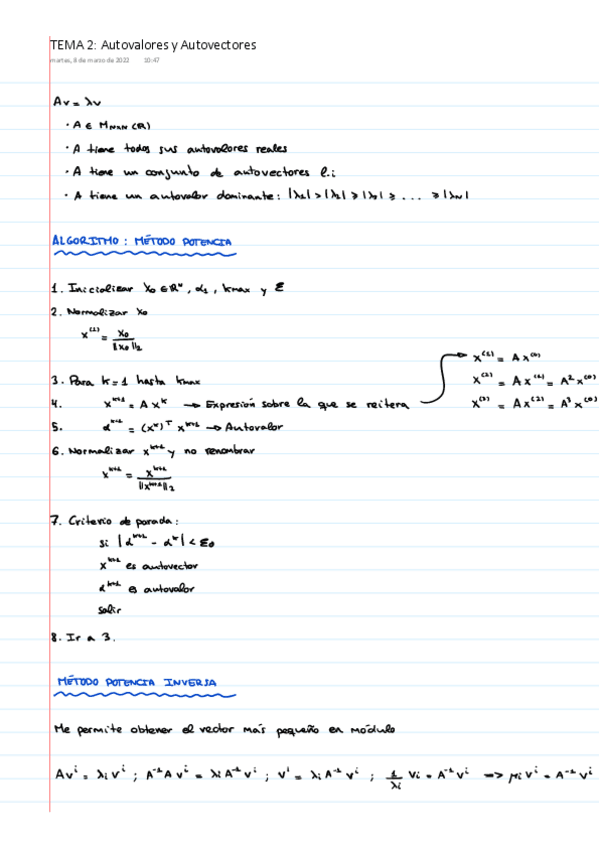 TEMA 2: Autovalores y Autovectores
martes, 8 de marzo de 2022 10:47
Av = λv
· A ∈ M_{NxN} (R)
· A tiene todos sus autovalores reales
· A tiene un conjunto de autovectores l.i
· A tiene un autovalor dominante: |λ₁| > |λ₂| ≥ |λ₃| ≥ ... ≥ |λ_N|
ALGORITMO: MÉTODO POTENCIA
1. Inicializar x₀ ∈ ℝⁿ, α₁, kmax y ε
2. Normalizar x₀
x^{(1)} = x₀ / ||x₀||₂
3. Para k = 1 hasta kmax
4. x^{k+1} = A x^k → Expresión sobre la que se reitera
x^{(1)} = A x^{(0)}
x^{(2)} = A x^{(1)} = A² x^{(0)}
x^{(3)} = A x^{(2)} = A³ x^{(0)}
5. α^{k+1} = (x^k)^T x^{k+1} → Autovalor
6. Normalizar x^{k+1} y no renombrar
x^{k+1} = x^{k+1} / ||x^{k+1}||₂
7. Criterio de parada:
si |α^{k+1} - α^k| < ε₀
x^{k+1} es autovector
α^{k+1} es autovalor
salir
8. Ir a 3.
MÉTODO POTENCIA INVERSA
Me permite obtener el vector más pequeño en módulo
Av^i = λi v^i ; A^{-1} A v^i = λi A^{-1} v^i ; v^i = λi A^{-1} v^i ; 1/λi vi = A^{-1} v^i => μi v^i = A^{-1} v^i